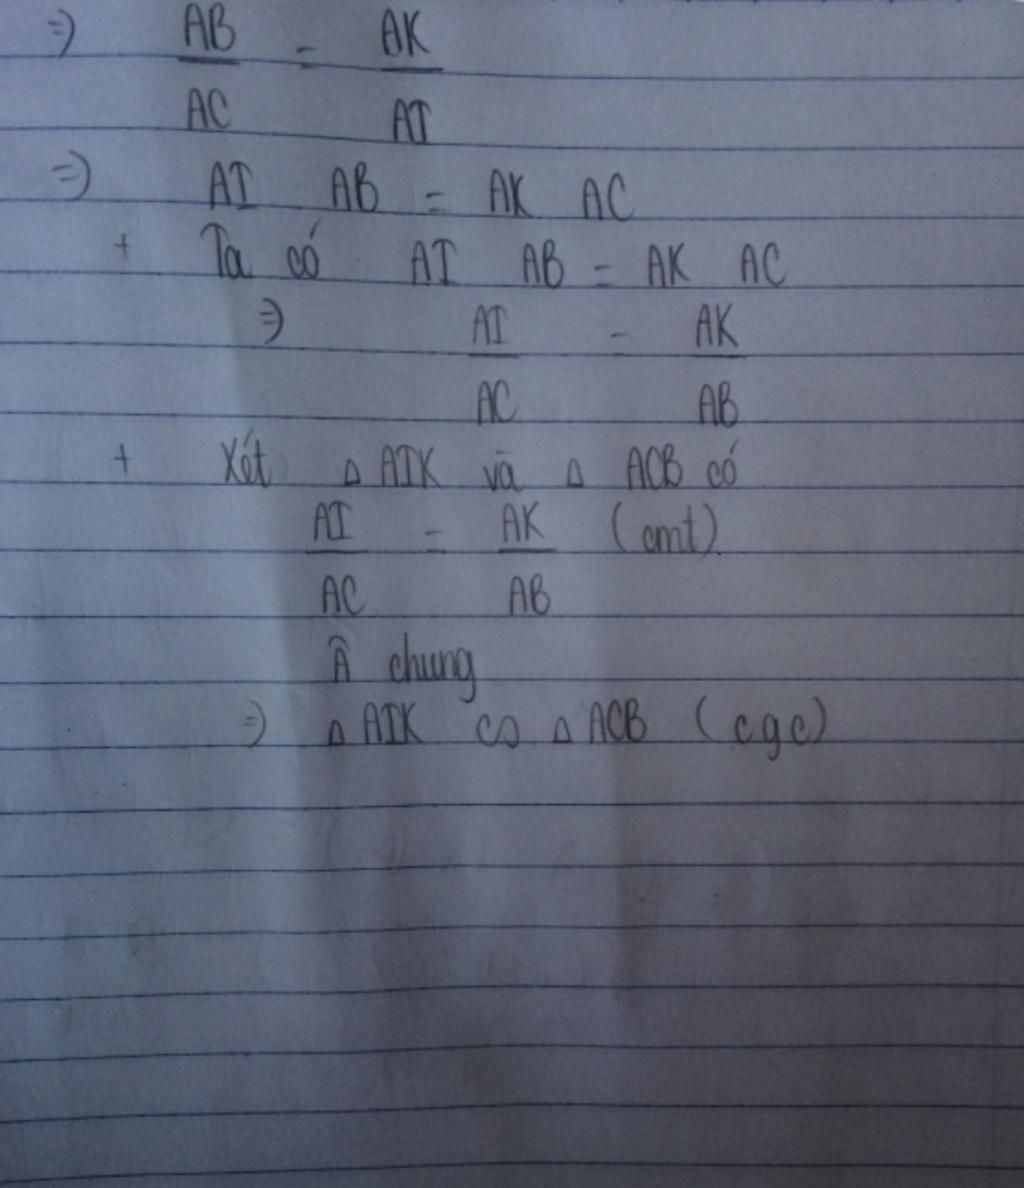 ⇒ AB = AK
AC AI
⇒ AI AB = AK AC
+ Ta có AI AB = AK AC
⇒ AI = AK
AC AB
+ Xét △ AIK và △ ACB có
AI = AK (cmt)
AC AB
Â chung
⇒ △ AIK ∽ △ ACB (c g c)